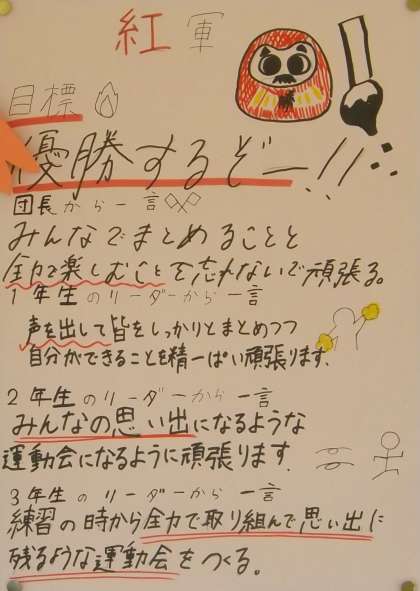 紅軍
目標
優勝するぞー!!
団長から一言
みんなでまとめることと
全力で楽しむことを忘れないで頑張る。
1年生のリーダーから一言
声を出して皆をしっかりとまとめつつ
自分ができることを精一ぱい頑張ります.
2年生のリーダーから一言
みんなの思い出になるような
運動会になるように頑張ります.
3年生のリーダーから一言
練習の時から全力で取り組んで思い出に
残るような運動会をつくる。